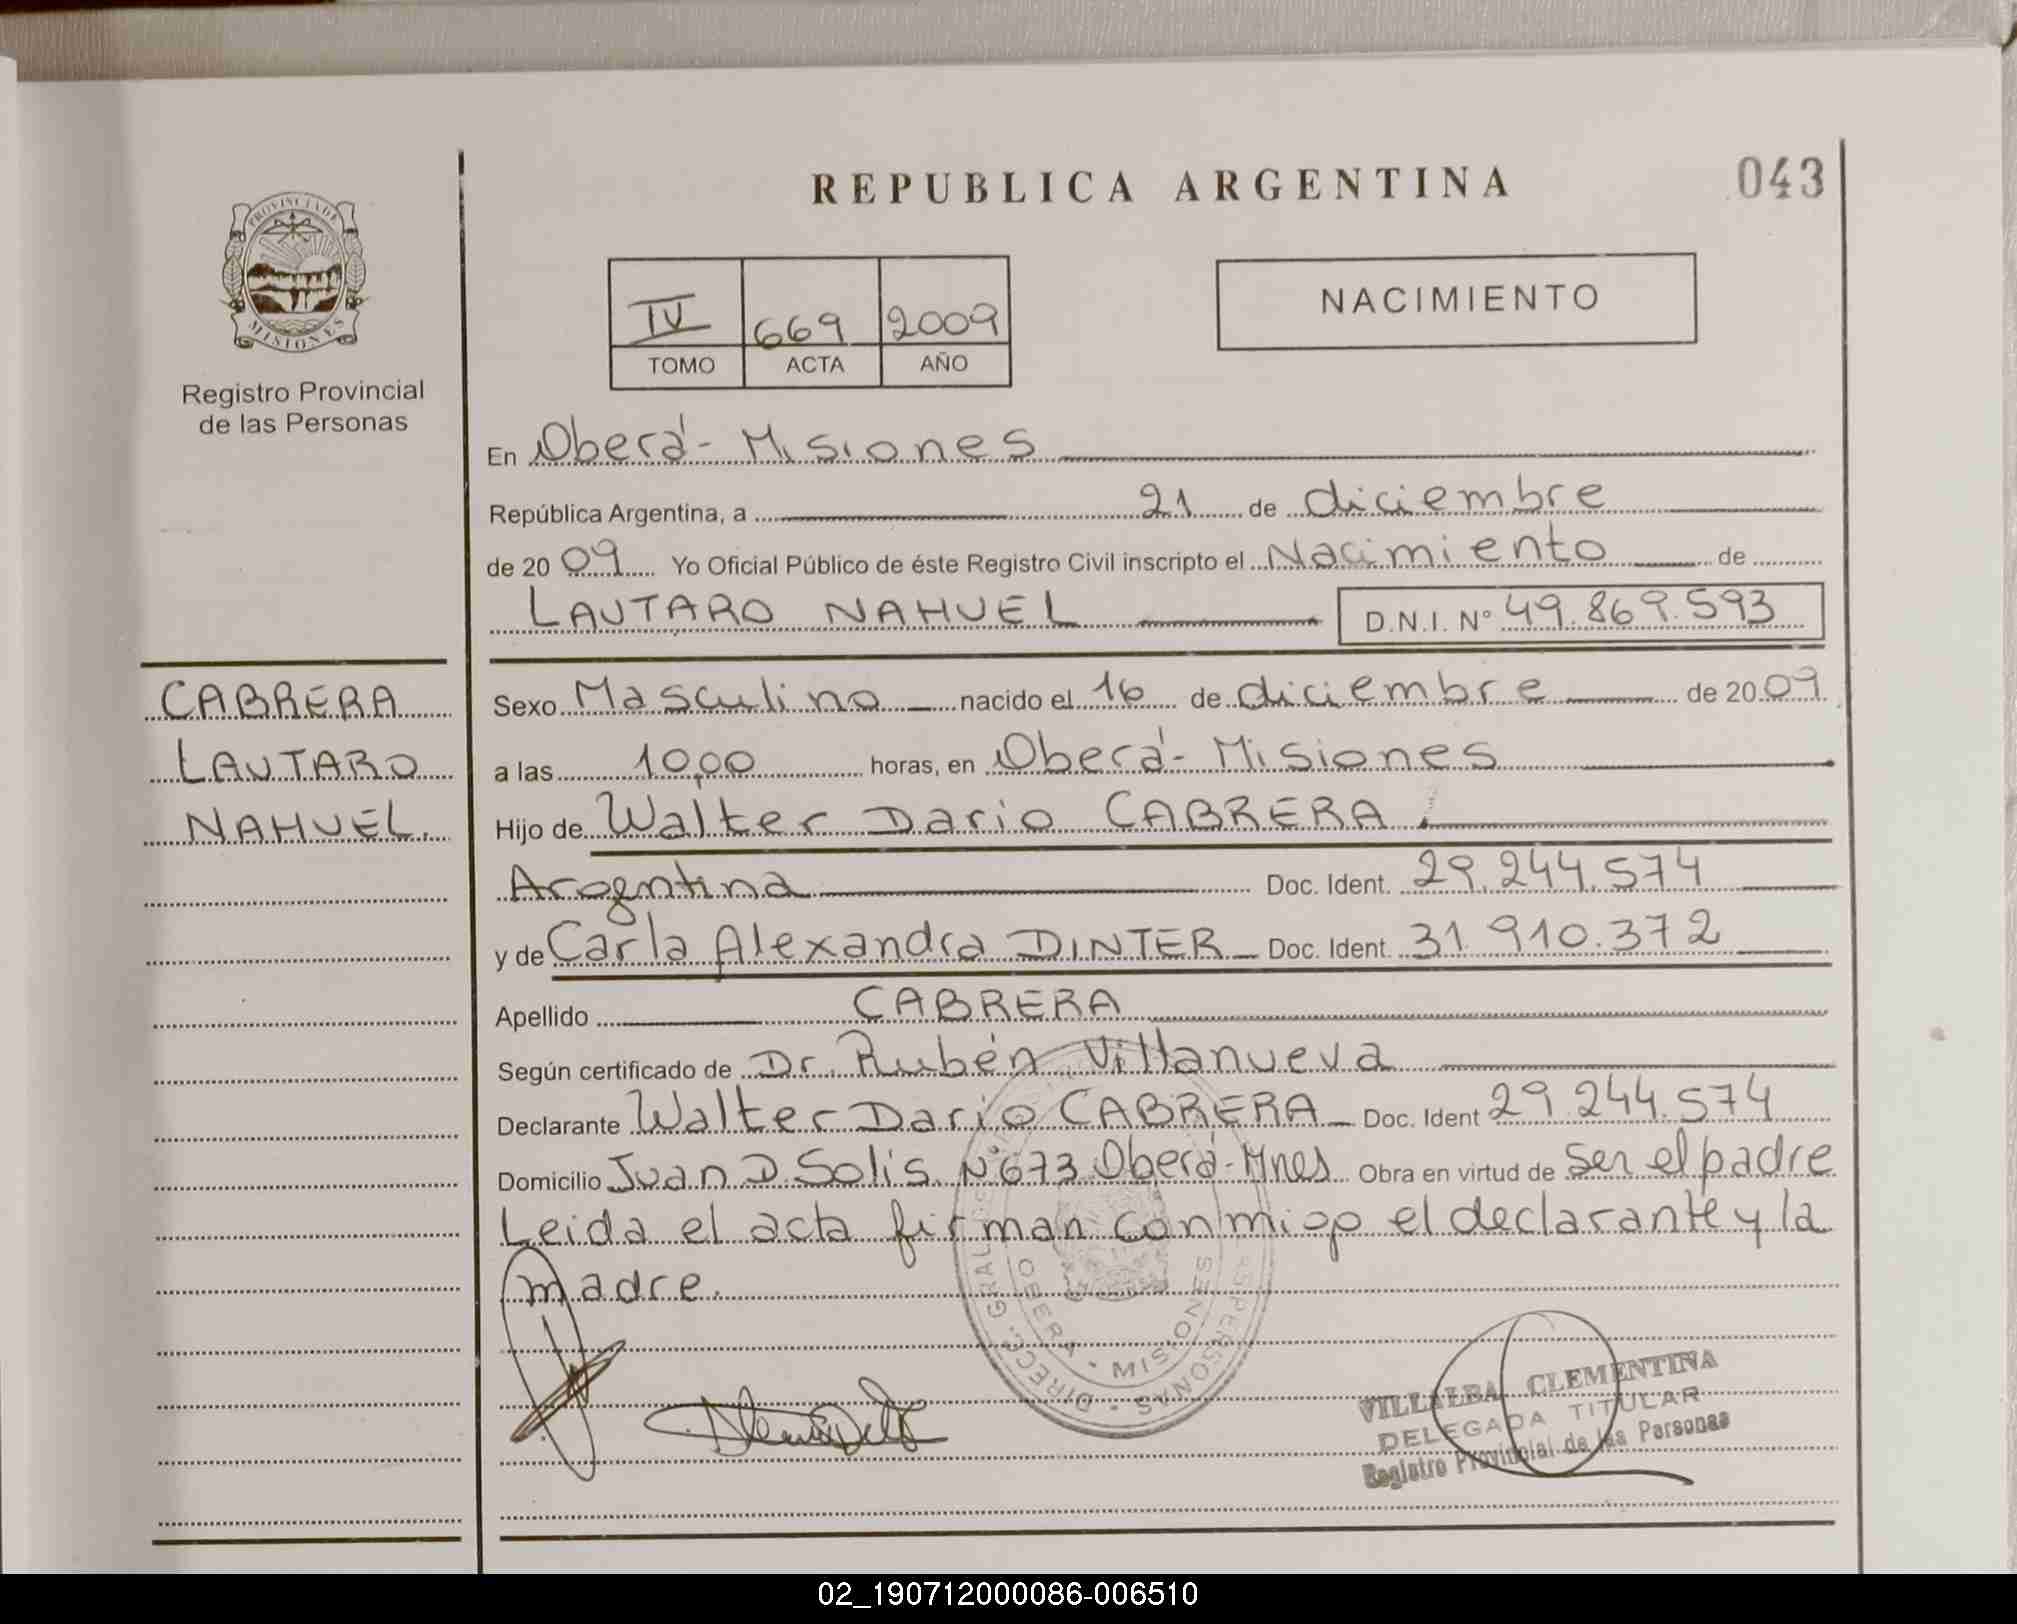 REPUBLICA ARGENTINA
043
PROVINCIA DE
MISIONES
Registro Provincial
de las Personas
IV 669 2009
TOMO ACTA AÑO
NACIMIENTO
En Oberá - Misiones
República Argentina, a 21 de diciembre
de 2009 Yo Oficial Público de éste Registro Civil inscripto el Nacimiento de
LAUTARO NAHUEL D.N.I. Nº 49.869.593
CABRERA
LAUTARO
NAHUEL.
Sexo Masculino nacido el 16 de diciembre de 2009
a las 10,00 horas, en Oberá - Misiones
Hijo de Walter Dario CABRERA
Argentina Doc. Ident. 29.244.574
y de Carla Alexandra DINTER Doc. Ident. 31.910.372
Apellido CABRERA
Según certificado de Dr. Rubén Villanueva
Declarante Walter Dario CABRERA Doc. Ident 29.244.574
Domicilio Juan D. Solis Nº 673 Oberá - Mnes Obra en virtud de Ser el padre
Leida el acta firman conmigo el declarante y la
madre.
DIRECC. GRAL. PERSONAS
OBERA - MISIONES
VILLALBA CLEMENTINA
DELEGADA TITULAR
Registro Provincial de las Personas
02_190712000086-006510